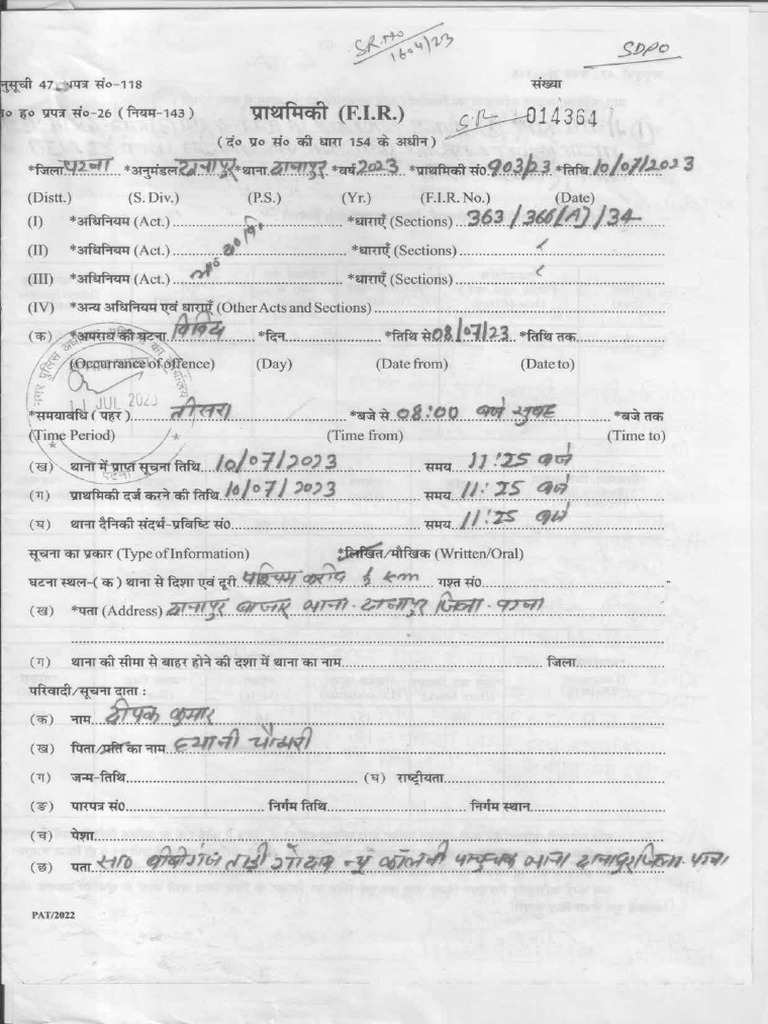 SR.No
1604/23
SDPO
नुसूची 47 प्रपत्र सं०-118 संख्या
० ह० प्रपत्र सं०-26 ( नियम-143 ) प्राथमिकी (F.I.R.) 014364
( दं० प्र० सं० की धारा 154 के अधीन )
*जिला पटना *अनुमंडल दानापुर *थाना दानापुर *वर्ष 2023 *प्राथमिकी सं० 903/23 *तिथि 10/07/2023
(Distt.) (S. Div.) (P.S.) (Yr.) (F.I.R. No.) (Date)
(I) *अधिनियम (Act.) *धाराएँ (Sections) 363/366(A)/34
(II) *अधिनियम (Act.) भा० द० वि० *धाराएँ (Sections)
(III) *अधिनियम (Act.) *धाराएँ (Sections)
(IV) *अन्य अधिनियम एवं धाराएँ (Other Acts and Sections)
(क) *अपराध की घटना विविध *दिन *तिथि से 08/07/23 *तिथि तक
(Occurrance of offence) (Day) (Date from) (Date to)
11 JUL 2023
*समयावधि ( पहर ) तीसरा *बजे से 08:00 बजे सुबह *बजे तक
(Time Period) (Time from) (Time to)
पटना
(ख) थाना में प्राप्त सूचना तिथि 10/07/2023 समय 11:25 बजे
(ग) प्राथमिकी दर्ज करने की तिथि 10/07/2023 समय 11:25 बजे
(घ) थाना दैनिकी संदर्भ-प्रविष्टि सं० समय 11:25 बजे
सूचना का प्रकार (Type of Information) *लिखित/मौखिक (Written/Oral)
घटना स्थल-( क ) थाना से दिशा एवं दूरी पश्चिम करीब ½ km गश्त सं०
(ख) *पता (Address) दानापुर बाजार थाना-दानापुर जिला-पटना
(ग) थाना की सीमा से बाहर होने की दशा में थाना का नाम जिला
परिवादी/सूचना दाता :
(क) नाम दीपक कुमार
(ख) पिता/पति का नाम ध्यानी चौधरी
(ग) जन्म-तिथि (घ) राष्ट्रीयता
(ङ) पारपत्र सं० निर्गम तिथि निर्गम स्थान
(च) पेशा
(छ) पता सा० बीबीगंज ताड़ी गोदाम न्यू कॉलनी थाना दानापुर जिला-पटना
PAT/2022